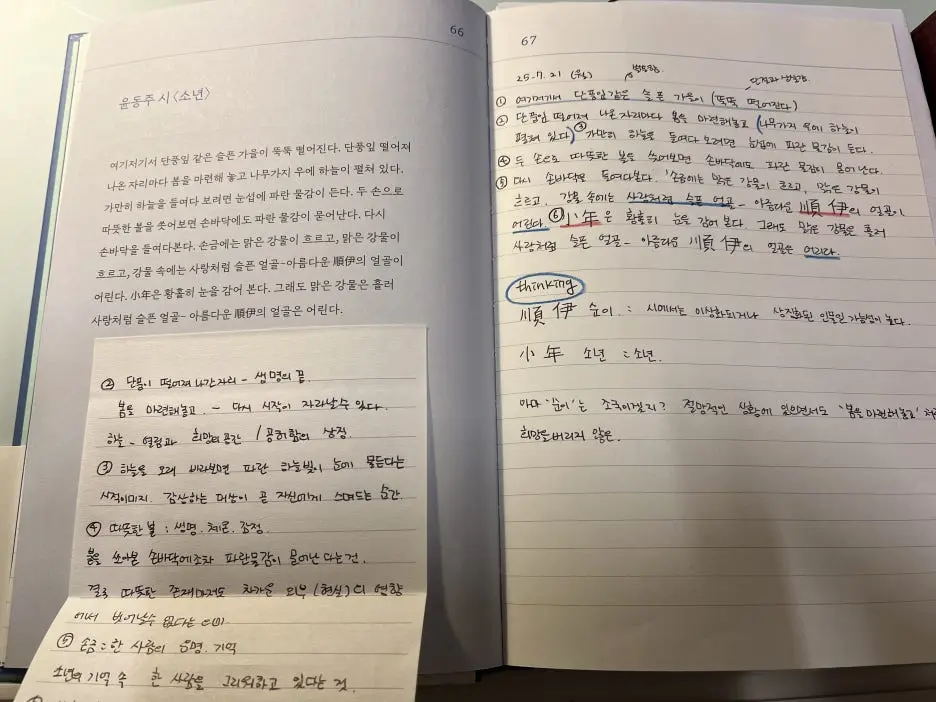 66
윤동주 시 〈소년〉
여기저기서 단풍잎 같은 슬픈 가을이 뚝뚝 떨어진다. 단풍잎 떨어져
나온 자리마다 봄을 마련해 놓고 나무가지 우에 하늘이 펼쳐 있다.
가만히 하늘을 들여다 보려면 눈섭에 파란 물감이 든다. 두 손으로
따뜻한 볼을 쓋어보면 손바닥에도 파란 물감이 묻어난다. 다시
손바닥을 들여다본다. 손금에는 맑은 강물이 흐르고, 맑은 강물이
흐르고, 강물 속에는 사랑처럼 슬픈 얼골-아름다운 順伊의 얼골이
어린다. 小年은 황홀히 눈을 감어 본다. 그래도 맑은 강물은 흘러
사랑처럼 슬픈 얼골- 아름다운 順伊의 얼골은 어린다.
② 단풍이 떨어져 나간 자리 - 생명의 끝.
봄을 마련해놓고. - 다시 시작이 자라날수 있다.
하늘 - 열림과 희망의 공간 / 공허함의 상징.
③ 하늘을 오래 바라보면 파란 하늘빛이 눈에 물든다는
시적이미지. 감상하는 대상이 곧 자신에게 스며드는 순간
④ 따뜻한 볼 : 생명. 체온. 감정.
볼을 쓰아본 손바닥에조차 파란물감이 묻어난다는건.
결국 따뜻한 존재마저도 차가운 외부 (현실)의 영향
에서 벗어날수 없다는 의미
⑤ 손금 : 한 사람의 운명. 기억
소년의 기억 속 한 사람을 그리워하고 있다는 것.
67
25.7.21 (월)
단절과 상실감.
① 여기저기서 단풍잎같은 슬픈 가을이 (뚝뚝 떨어진다)
② 단풍잎 떨어져 나온 자리마다 봄을 마련해놓고 (나무가지 우에 하늘이
펼쳐 있다) ③ 가만히 하늘을 들여다 보려면 눈섭에 파란 물감이 든다.
④ 두 손으로 따뜻한 볼을 쓰어보면 손바닥에도 파란 물감이 묻어난다.
⑤ 다시 손바닥을 들여다본다. 손금에는 맑은 강물이 흐르고, 맑은 강물이
흐르고, 강물 속에는 사랑처럼 슬픈 얼골 - 아름다운 順伊의 얼골이
어린다. ⑥ 小年은 황홀히 눈을 감어 본다. 그래도 맑은 강물은 흘러
사랑처럼 슬픈 얼골 - 아름다운 順伊의 얼골은 어린다.
thinking
順伊 순이 : 시에서는 이상화되거나 상징화된 인물일 가능성이 높다.
小年 소년 : 소년.
아마 '순이'는 조국이겠지? 절망적인 상황에 있으면서도 '봄을 마련해놓고' 처
희망을버리지 않은.